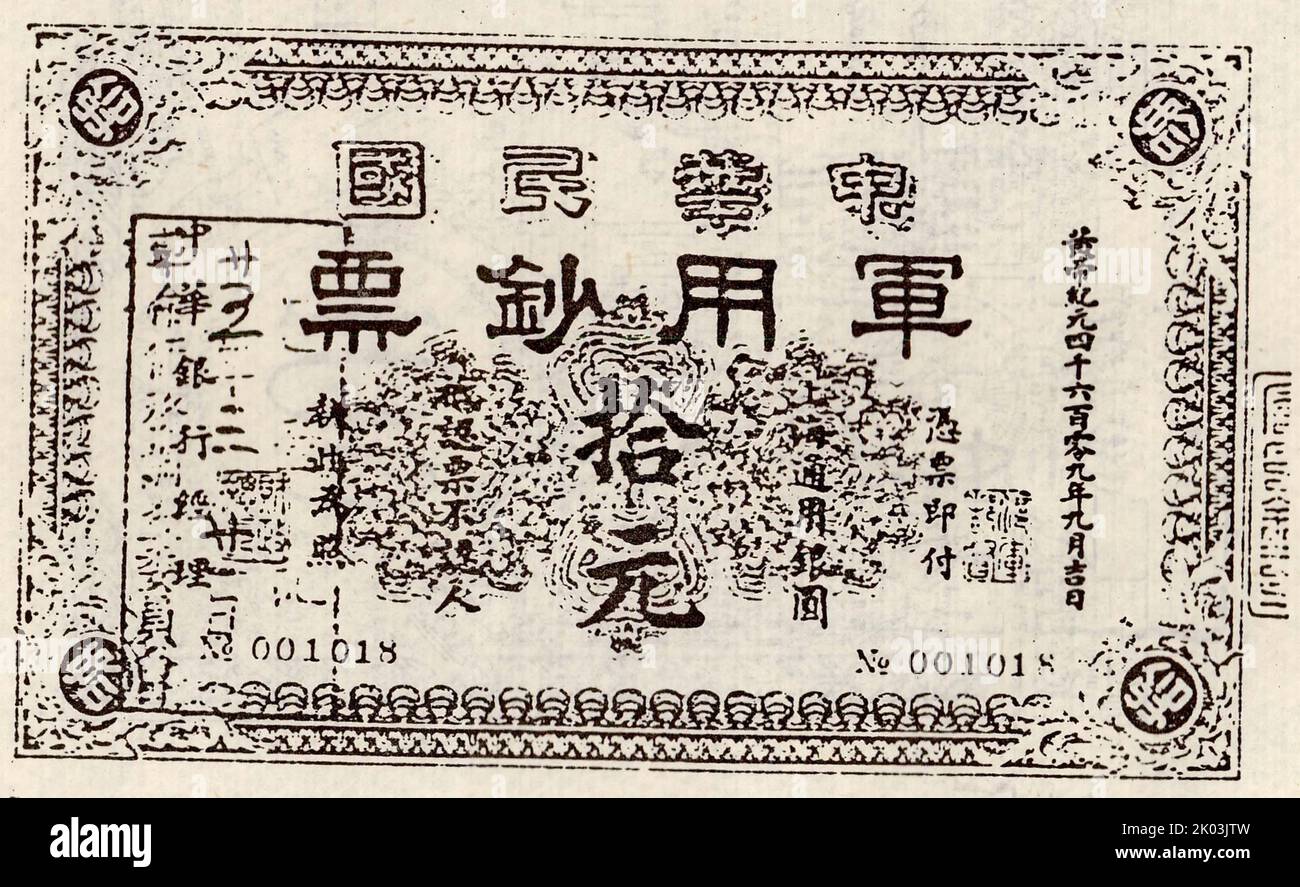 中華民國
軍用鈔票
黃帝紀元四千六百零九年九月吉日
憑票即付
上海通用銀圓
拾元
認票不認人
執此為照
中華銀行經理
№ 001018
№ 001018
alamy
Image ID: 2K03JTW
www.alamy.com